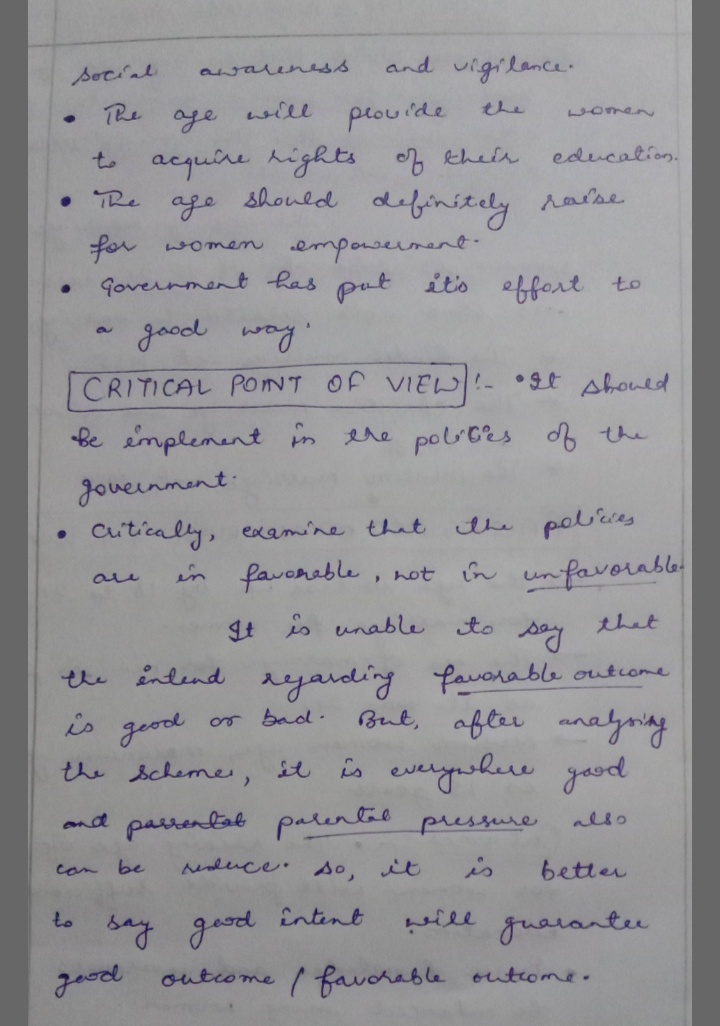 social awareness and vigilance.
• The age will provide the women
to acquire rights of their education.
• The age should definitely raise
for women empowerment.
• Government has put it's effort to
a good way.
CRITICAL POINT OF VIEW :- • It should
be implement in the policies of the
government.
• Critically, examine that the policies
are in favorable, not in unfavorable.
It is unable to say that
the intend regarding favorable outcome
is good or bad. But, after analysing
the scheme, it is everywhere good
and parrental parental pressure also
can be reduce. So, it is better
to say good intent will guarantee
good outcome / favorable outcome.